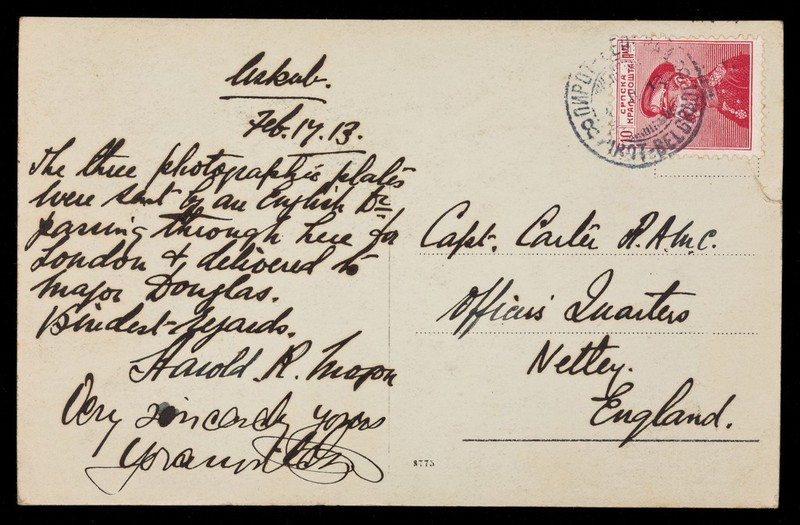 Uskub.
Feb. 17. 13.
The three photographic plates
were sent by an English Dr
passing through here for
London & delivered to
Major Douglas.
Kindest regards.
Harold R. Mapon
Very sincerely yours
Capt. Carter R.A.M.C.
Officers Quarters
Netley.
England.
8775
10
СРПСКА
КРАЉ.ПОШТА
ПИРОТ-БЕОГРАД
PIROT-BELGRADE
8